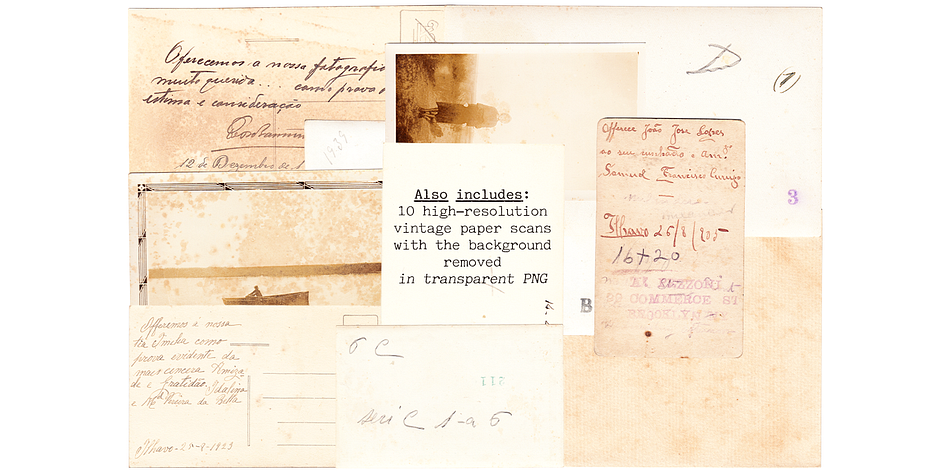 Oferecemos a nossa fotografia
muito querida... como prova d
estima e consideração
12 de Dezembro de 1
1939
D
(7)
3
Also includes:
10 high-resolution
vintage paper scans
with the background
removed
in transparent PNG
14-2
B
Offerece João Jose Lopes
ao seu cunhado e am.º
Samuel Francisco
Ilhavo 25/8/905
16+20
COMMERCE ST
BROOKLYN, N.Y.
Offeremos a nossa
tia Amelia como
prova evidente da
mais cencera Amiza-
de e Gratidão. Idalina
e Mª Vieira da Bella
Ilhavo-25-9-1923
6 C
211
seri C 1-a 6